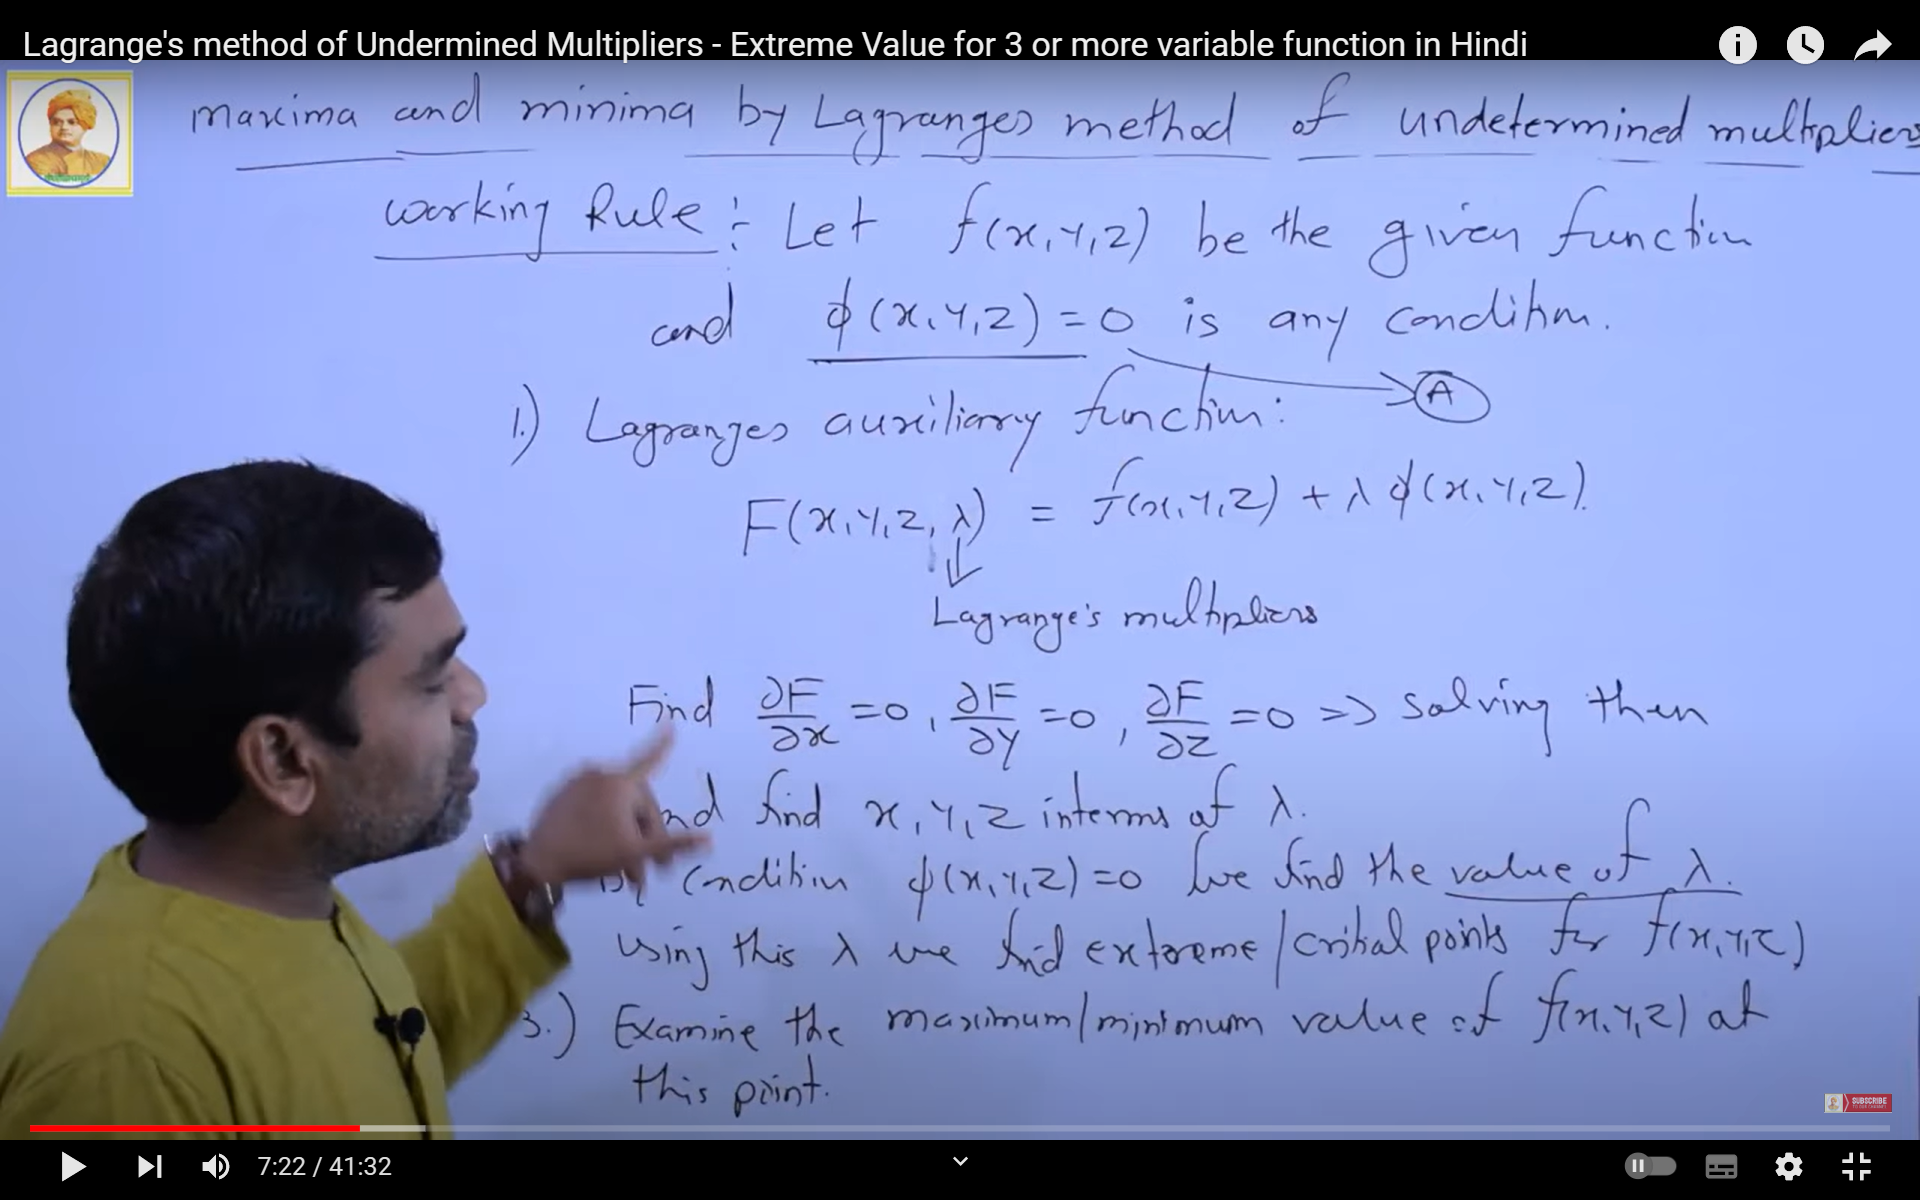 Lagrange's method of Undermined Multipliers - Extreme Value for 3 or more variable function in Hindi
maxima and minima by Lagranges method of undetermined multipliers
working Rule :- Let f(x,y,z) be the given function
and ϕ(x,y,z) = 0 is any condition.
A
1.) Lagranges auxiliary function:
F(x,y,z,λ) = f(x,y,z) + λ ϕ(x,y,z).
Lagrange's multipliers
Find ∂F/∂x = 0, ∂F/∂y = 0, ∂F/∂z = 0 => solving then
find x,y,z interms of λ.
condition ϕ(x,y,z) = 0 we find the value of λ.
using this λ we find extreme/critial points for f(x,y,z)
3.) Examine the maximum/minimum value of f(x,y,z) at
this point.
SUBSCRIBE
7:22 / 41:32